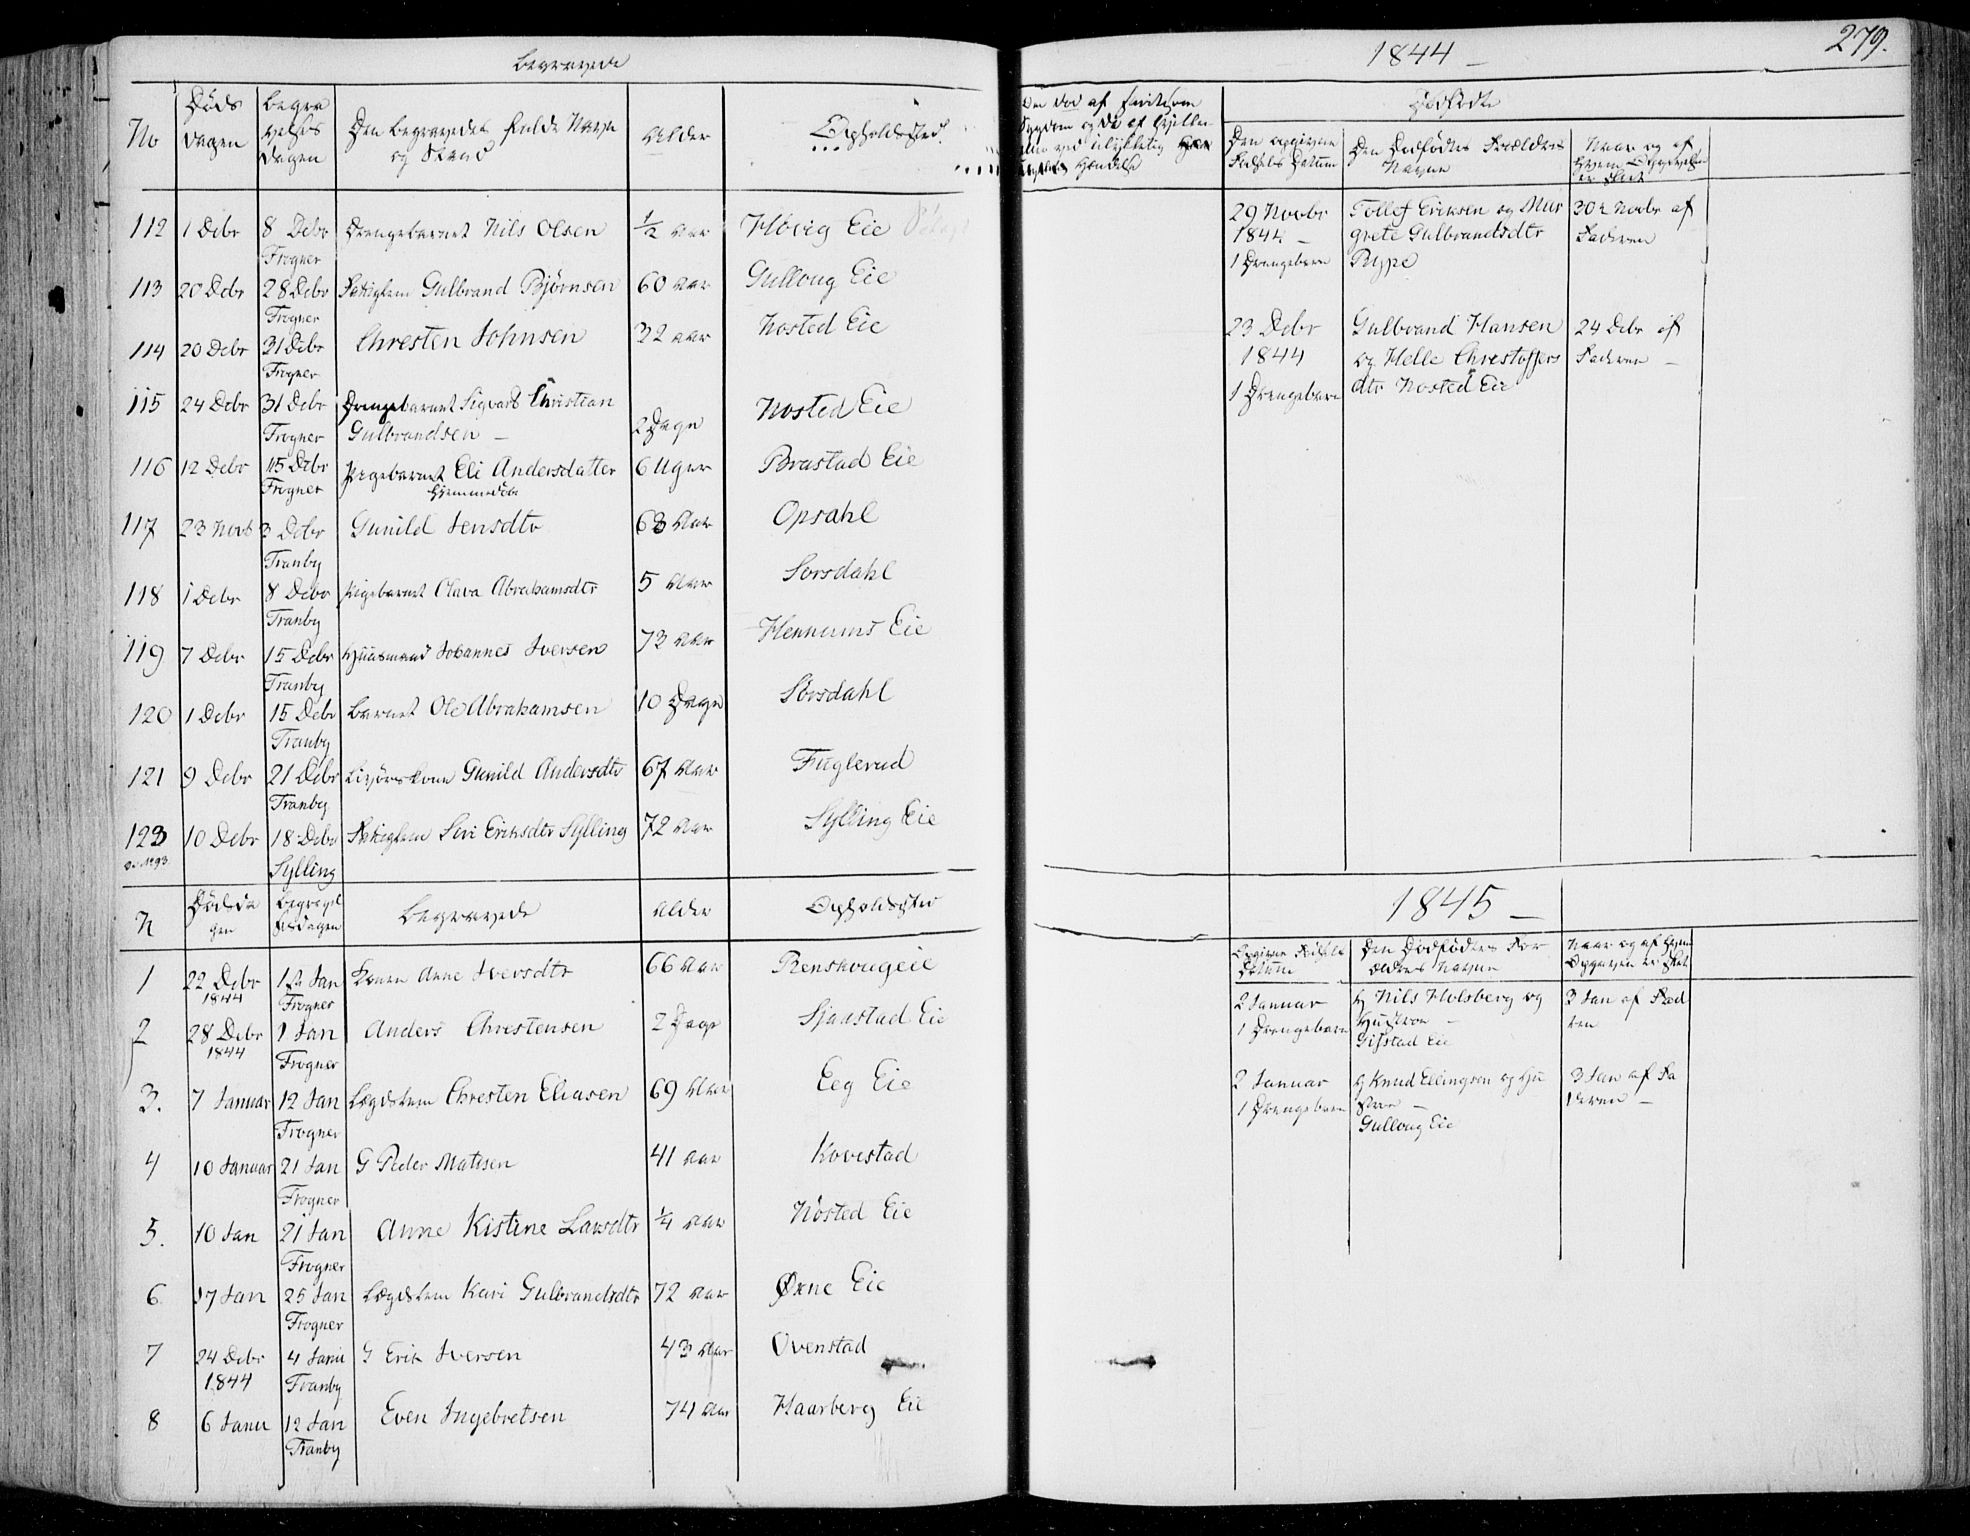 Begravede
No
Døds
dagen
Begra
velses
Dagen
Den begravedes fulde Navn
og Stand
Alder
Opholdssted.
112 1 Debr 8 Debr Drengebarnet Nils Olsen 1/2 Aar Hovig Eie
Frogner
113 20 Debr 28 Debr Gulbrand Bjørnsen 60 Aar Gulloug Eie
Frogner
114 20 Debr 31 Debr Chresten Johnsen 32 aar Nosted Eie
Frogner
115 24 Debr 31 Debr Drengebarnet Sigvart Christian
Frogner Gulbrandsen – 2 Dage Nosted Eie
116 12 Debr 15 Debr Pigebarnet Eli Andersdatter 6 Uger Brastad Eie
Frogner hjemmedøbt
117 23 Novb 3 Debr Gunild Jensdtr 68 Aar Opsahl
Tranby
118 1 Debr 8 Debr Pigebarnet Olava Abrahamsdtr 5 Aar Sorsdahl
Tranby
119 7 Debr 15 Debr Huusmand Johannes Iversen 73 Aar Hennums Eie
Tranby
120 1 Debr 15 Debr Barnet Ole Abrahamsen 10 Dage Sörsdahl
Tranby
121 9 Debr 21 Debr Gunild Andersdtr 67 Aar Fuglerud
Tranby
123 10 Debr 18 Debr Siri Eriksdtr Sylling 72 Aar Sylling Eie
Sylling
N
Dødsda
gen
Begravel
sesdagen
Begravede
Alder
Opholdssted
1 22 Debr 12 Jan Konen Anne Iversdtr 66 Aar Renskougeie
1844 Frogner
2 28 Debr 1 Jan Anders Chrestensen 2 Dage Sjaastad Eie
1844 Frogner
3. 7 Januar 12 Jan Lægdslem Chresten Eliasen 69 Aar Eeg Eie
Frogner
4 10 Januar 21 Jan G Peder Matisen 41 aar Kovestad
Frogner
5. 10 Jan 21 Jan Anne Kistine Larsdtr 1/4 aar Nösted Eie
Frogner
6 17 Jan 25 Jan Lægdslem Kari Gulbrandsdtr 72 Aar Øxne Eie
Frogner
7 24 Debr 4 Janu G Erik Iversen 43 Aar Ovenstad
1844 Tranby
8 6 Janu 12 Jan Even Ingebretsen 74 Aar Haarberg Eie
Tranby
1844 –
279.
Dødfødte
Den opgivne
Fødsels Datum
Den Dødfødtes Forældres
Navne
Naar og af
Hvem Opgivelsen
er skeet
29 Novbr Tollef Eriksen og Mar 30te Novbr af
1844 – grete Gulbrandsdtr Faderen
1 Drengebarn Rype
23 Debr Gulbrand Hansen 24 Debr af
1844 og Helle Chrestoffers Faderen –
1 Drengebarn dtr Nosted Eie
1845 –
Opgivne Fødsels
Datum
Den Dødfødtes For
ældres Navne
Naar og af Hvem
Opgaven er skeet
2 Januar G Nils Holsberg og 3 Jan af Fad
1 Drengebarn Hustroe – ren
Gifstad Eie
2 Januar G Knud Ellingsen og Hu 3 Jan af Fa
1 Drengebarn stroe – deren –
Gulloug Eie